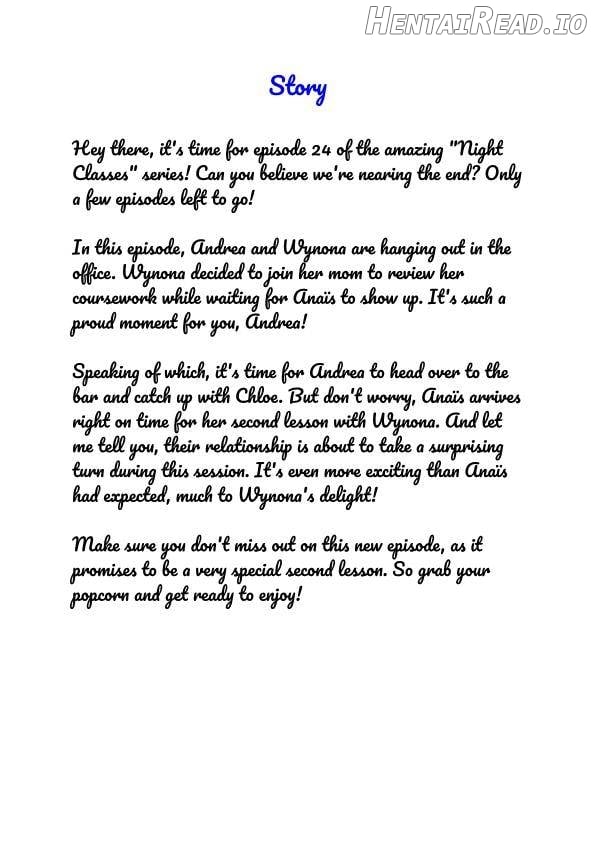 HentaiRead.io
Story
Hey there, it's time for episode 24 of the amazing "Night
Classes" series! Can you believe we're nearing the end? Only
a few episodes left to go!
In this episode, Andrea and Wynona are hanging out in the
office. Wynona decided to join her mom to review her
coursework while waiting for Anaïs to show up. It's such a
proud moment for you, Andrea!
Speaking of which, it's time for Andrea to head over to the
bar and catch up with Chloe. But don't worry, Anaïs arrives
right on time for her second lesson with Wynona. And let
me tell you, their relationship is about to take a surprising
turn during this session. It's even more exciting than Anaïs
had expected, much to Wynona's delight!
Make sure you don't miss out on this new episode, as it
promises to be a very special second lesson. So grab your
popcorn and get ready to enjoy!